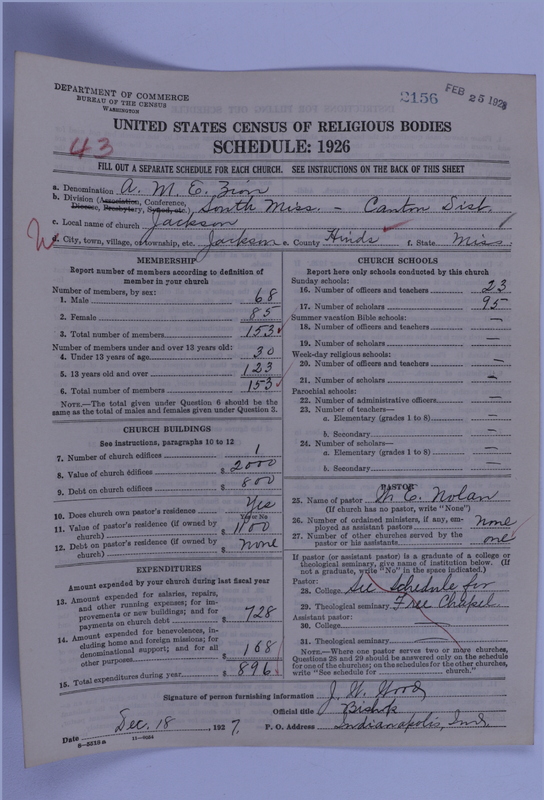 DEPARTMENT OF COMMERCE
BUREAU OF THE CENSUS
WASHINGTON
2156 FEB 25 1928
UNITED STATES CENSUS OF RELIGIOUS BODIES
43
SCHEDULE: 1926
FILL OUT A SEPARATE SCHEDULE FOR EACH CHURCH. SEE INSTRUCTIONS ON THE BACK OF THIS SHEET
a. Denomination A. M. E. Zion
b. Division (Association, Conference, Diocese, Presbytery, Synod, etc.) South Miss. - Canton Dist.
c. Local name of church Jackson
d. City, town, village, or township, etc. Jackson e. County Hinds f. State Miss.
MEMBERSHIP
Report number of members according to definition of
member in your church
Number of members, by sex:
1. Male 68
2. Female 85
3. Total number of members 153
Number of members under and over 13 years old:
4. Under 13 years of age 30
5. 13 years old and over 123
6. Total number of members 153
NOTE.—The total given under Question 6 should be
same as the total of males and females given under Question 3.
CHURCH BUILDINGS
See instructions, paragraphs 10 to 12
7. Number of church edifices 1
8. Value of church edifices $ 2000
9. Debt on church edifices $ 800
10. Does church own pastor's residence Yes
Yes or No
11. Value of pastor's residence (if owned by
church) $ 1100
12. Debt on pastor's residence (if owned by
church) $ none
EXPENDITURES
Amount expended by your church during last fiscal year
13. Amount expended for salaries, repairs,
and other running expenses; for im-
provements or new buildings; and for
payments on church debt $ 728
14. Amount expended for benevolences, in-
cluding home and foreign missions; for
denominational support; and for all
other purposes 168
15. Total expenditures during year $ 896
CHURCH SCHOOLS
Report here only schools conducted by this church
Sunday schools:
16. Number of officers and teachers 23
17. Number of scholars 95
Summer vacation Bible schools:
18. Number of officers and teachers —
19. Number of scholars —
Week-day religious schools:
20. Number of officers and teachers —
21. Number of scholars —
Parochial schools:
22. Number of administrative officers —
23. Number of teachers—
a. Elementary (grades 1 to 8) —
b. Secondary —
24. Number of scholars—
a. Elementary (grades 1 to 8) —
b. Secondary —
PASTOR
25. Name of pastor E. Nolan
(If church has no pastor, write "None")
26. Number of ordained ministers, if any, em-
ployed as assistant pastors none
27. Number of other churches served by the
pastor or his assistants one
If pastor (or assistant pastor) is a graduate of a college or
theological seminary, give name of institution below. (If
not a graduate, write "No" in the space indicated.)
Pastor:
28. College See Schedule for
29. Theological seminary Free Chapel
Assistant pastor:
30. College
31. Theological seminary
NOTE.—Where one pastor serves two or more churches,
Questions 28 and 29 should be answered only on the schedule
for one of the churches; on the schedules for the other churches,
write "See schedule for church."
Signature of person furnishing information J. W. Wood
Official title Bishop
Date Dec. 18 1927, P. O. Address Indianapolis, Ind.
8—5218a 11—9054